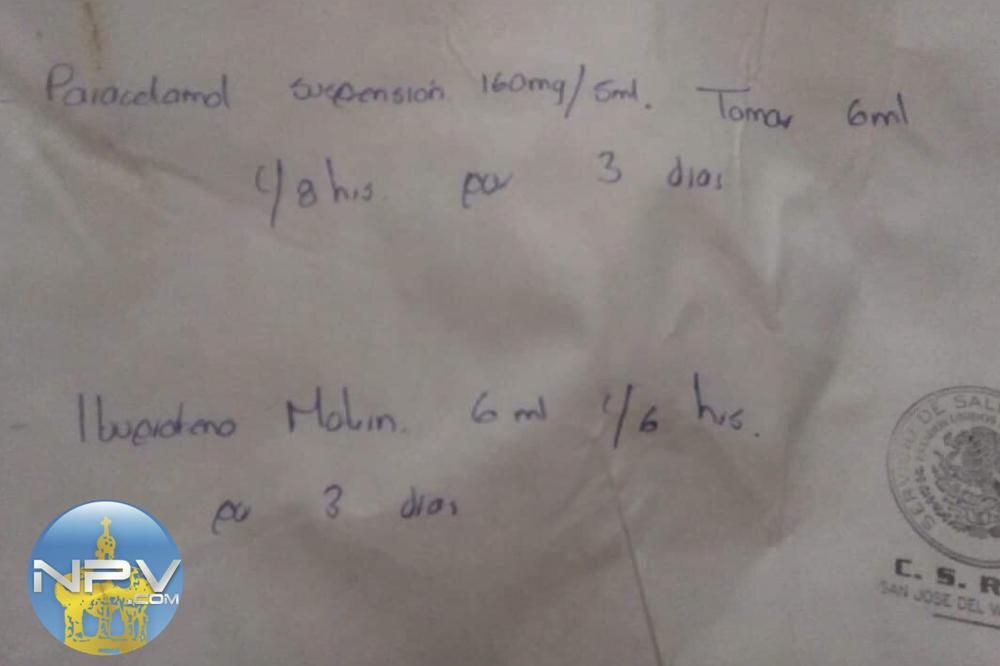 - Paracetamol suspensión 160mg/5ml. Tomar 6ml
c/8 hrs. por 3 dias
- Ibuprofeno Motrin. 6 ml c/6 hrs.
por 3 dias
NPV
.COM
SERVICIO DE SALU
C. S. R
SAN JOSE DEL V